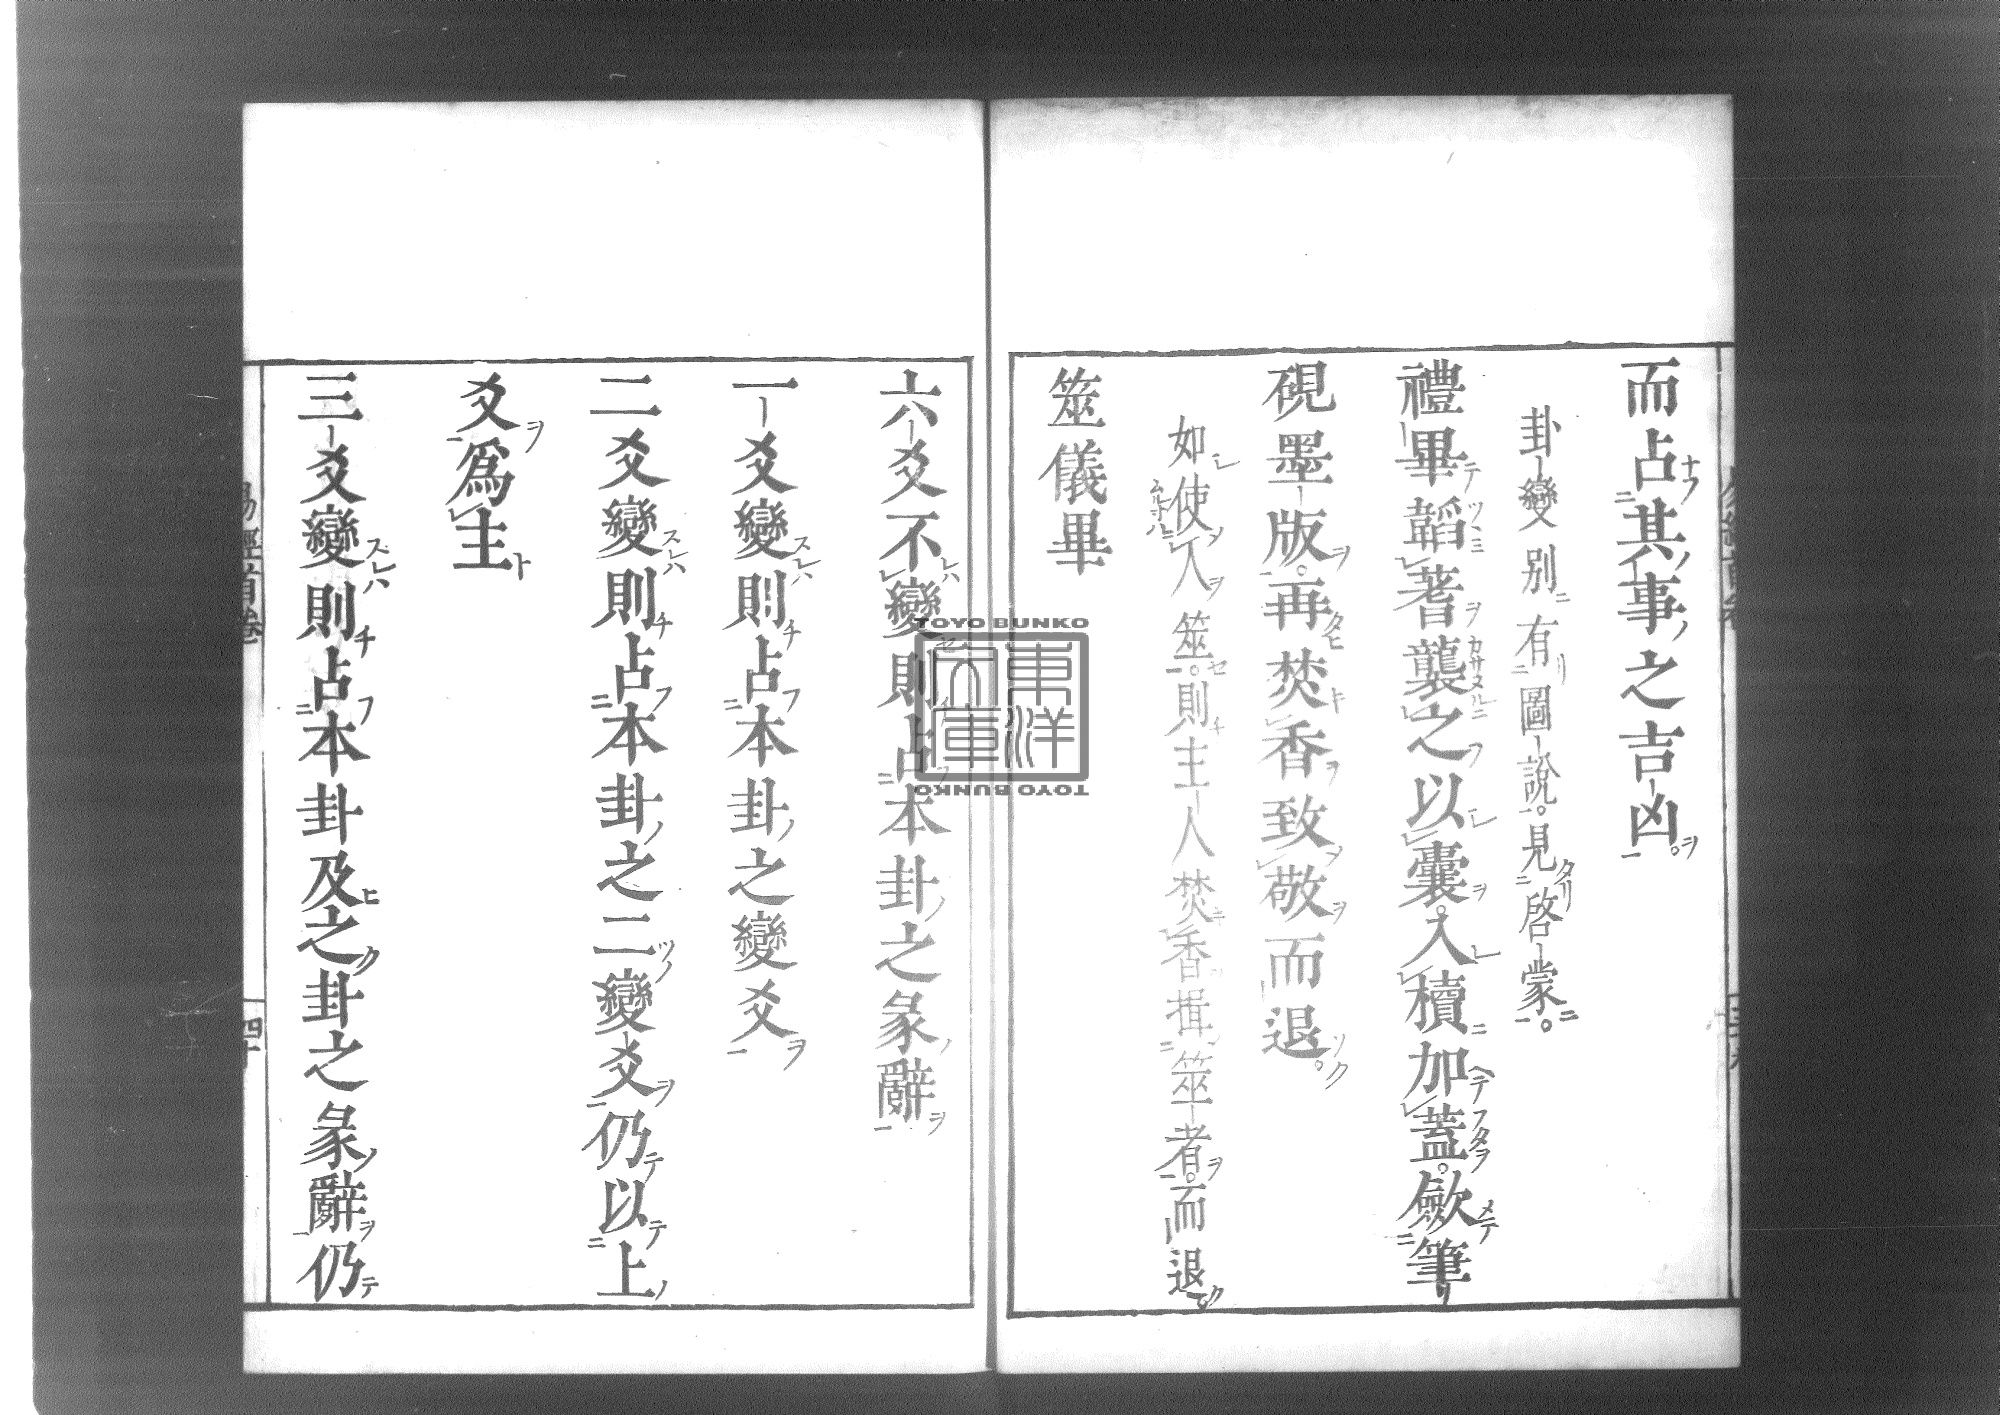 而占其事之吉凶
卦變別有圖說見啓蒙
禮畢韜蓍襲之以囊入櫝加蓋斂筆
硯墨版再焚香致敬而退
如使人筮則主人焚香揖筮者而退
筮儀畢
六爻不變則占本卦之彖辭
一爻變則占本卦之變爻
二爻變則占本卦之二變爻仍以上
爻爲主
三爻變則占本卦及之卦之彖辭仍
易經首卷
四十
TOYO BUNKO
東洋文庫
TOYO BUNKO